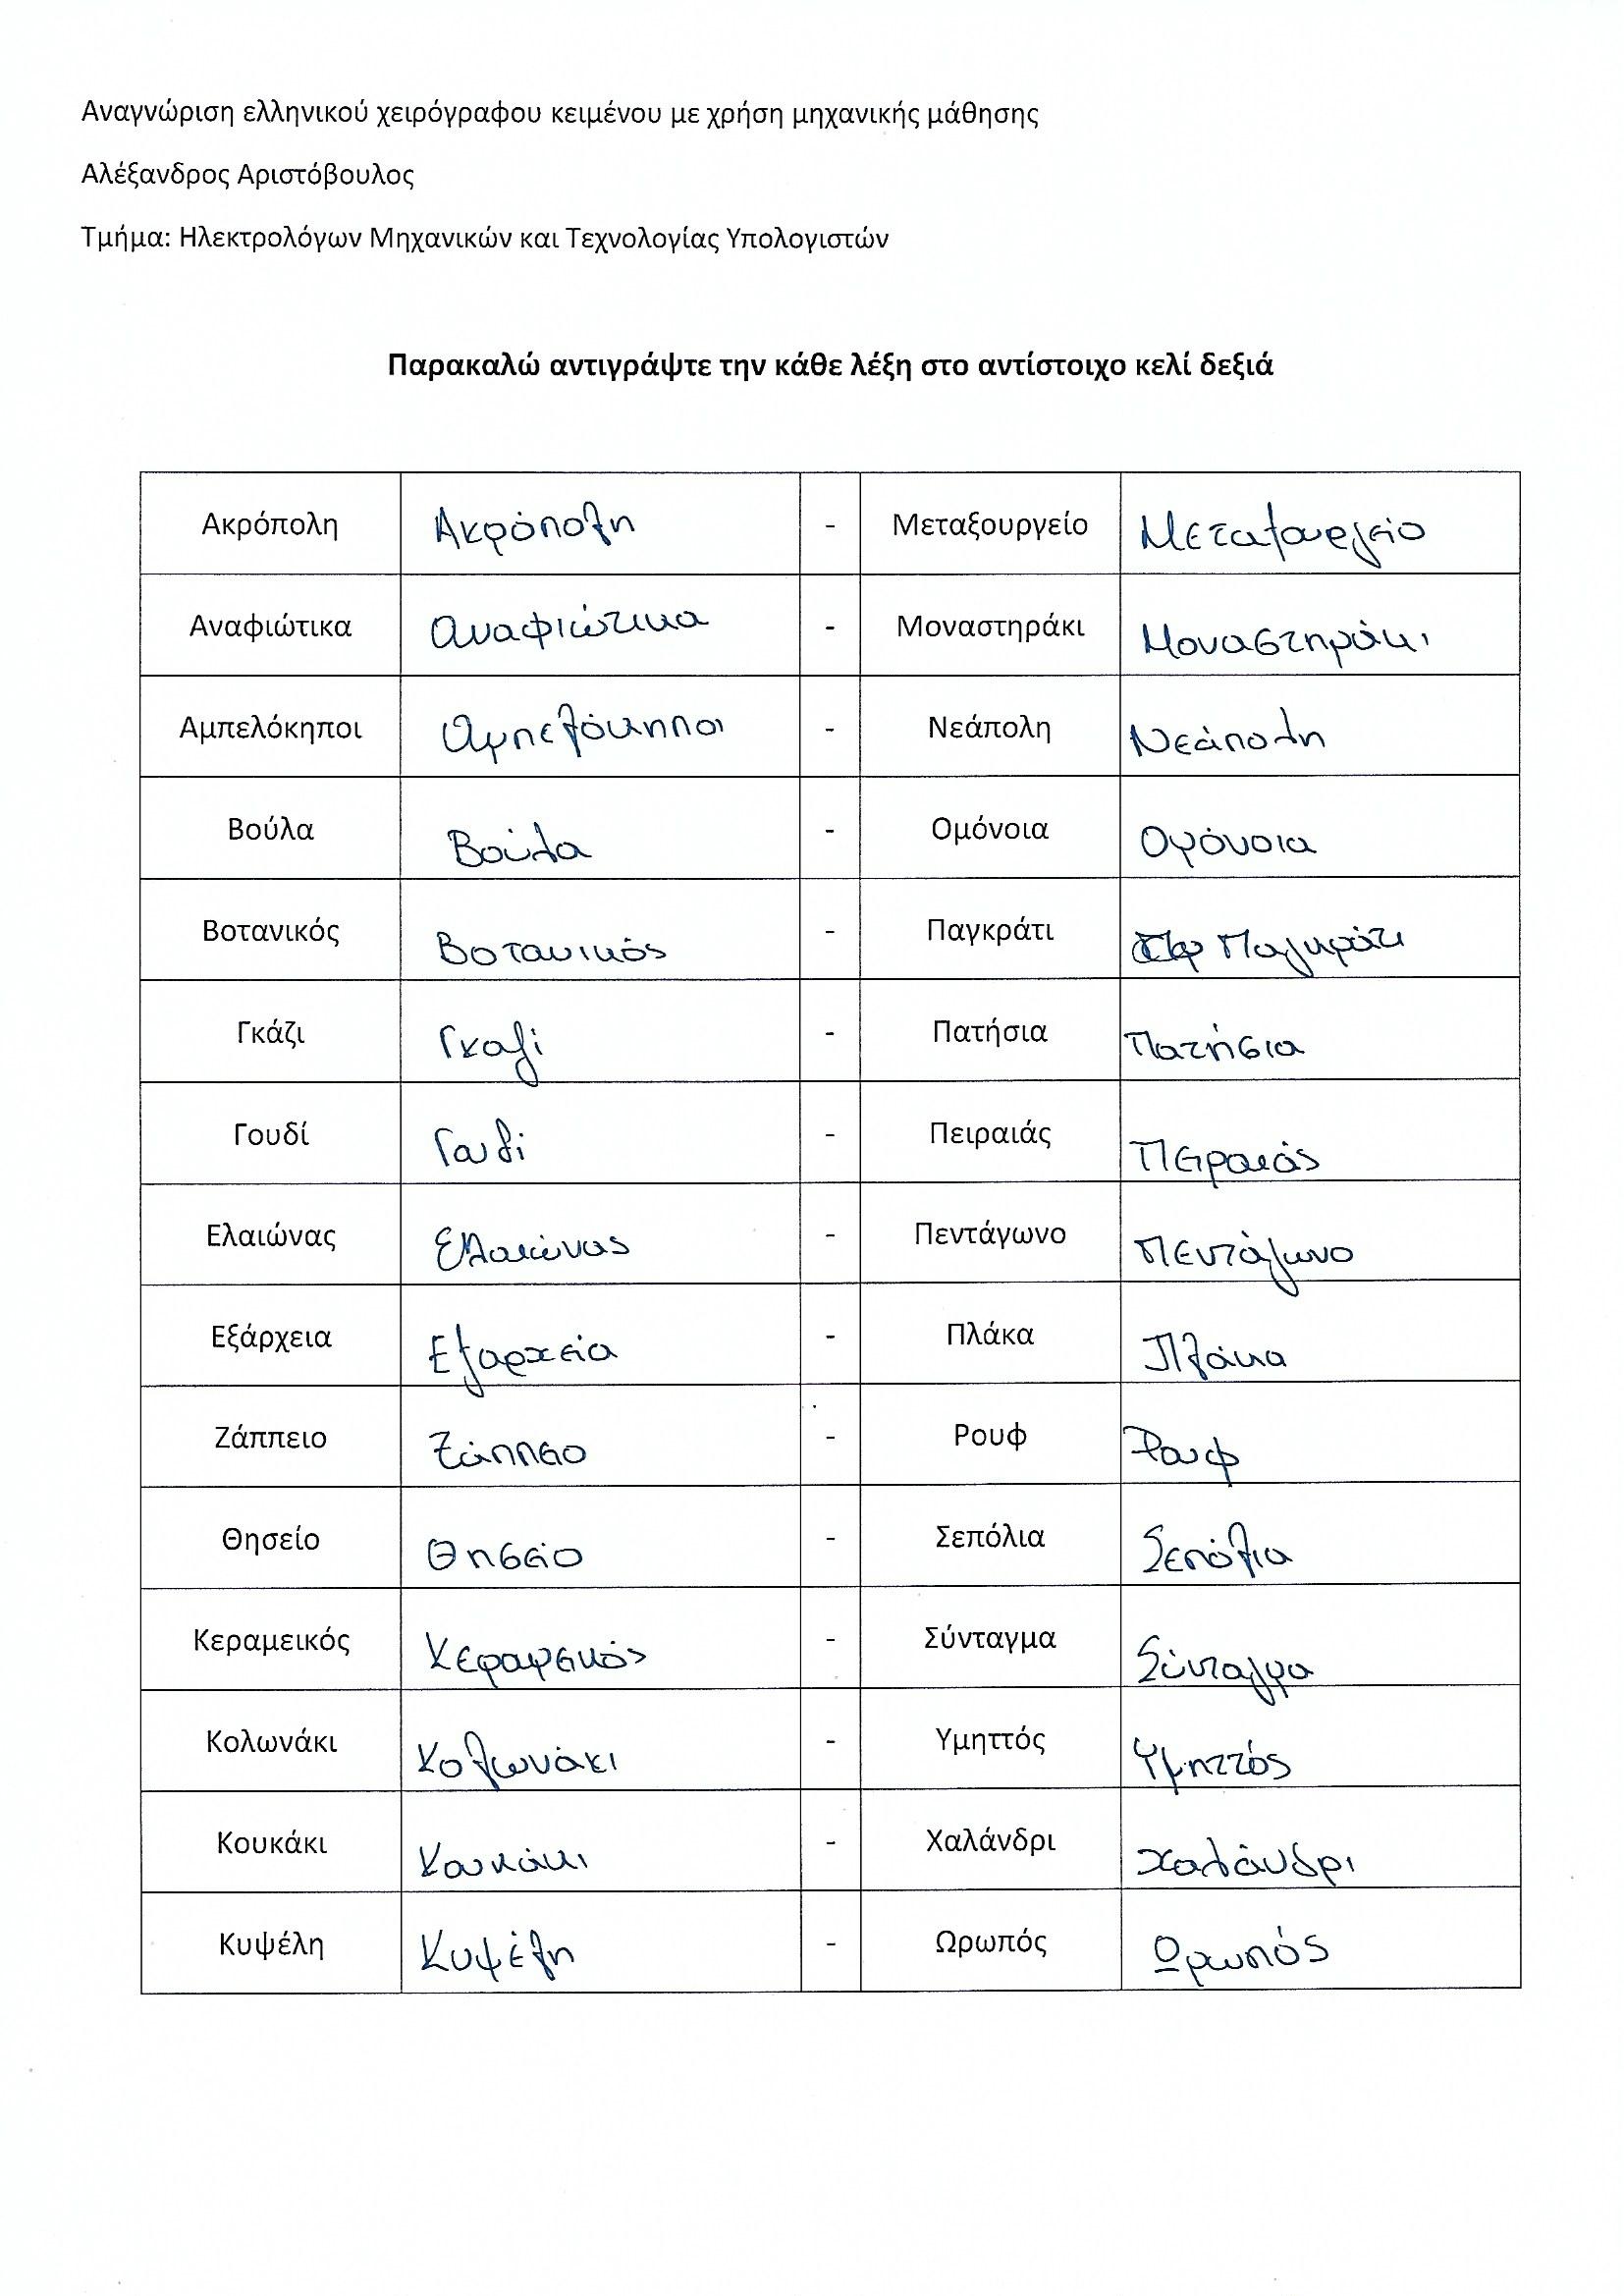 Αναγνώριση ελληνικού χειρόγραφου κειμένου με χρήση μηχανικής μάθησης
Αλέξανδρος Αριστόβουλος
Τμήμα: Ηλεκτρολόγων Μηχανικών και Τεχνολογίας Υπολογιστών
Παρακαλώ αντιγράψτε την κάθε λέξη στο αντίστοιχο κελί δεξιά
Ακρόπολη Ακρόπολη - Μεταξουργείο Μεταξουργείο
Αναφιώτικα Αναφιώτικα - Μοναστηράκι Μοναστηράκι
Αμπελόκηποι Αμπελόκηποι - Νεάπολη Νεάπολη
Βούλα Βούλα - Ομόνοια Ομόνοια
Βοτανικός Βοτανικός - Παγκράτι Παγκράτι
Γκάζι Γκαζί - Πατήσια Πατήσια
Γουδί Γουδί - Πειραιάς Πειραιάς
Ελαιώνας Ελαιώνας - Πεντάγωνο Πεντάγωνο
Εξάρχεια Εξαρχεία - Πλάκα Πλάκα
Ζάππειο Ζάππειο - Ρουφ Ρουφ
Θησείο Θησείο - Σεπόλια Σεπόλια
Κεραμεικός Κεραμεικός - Σύνταγμα Σύνταγμα
Κολωνάκι Κολωνάκι - Υμηττός Υμηττός
Κουκάκι Κουκάκι - Χαλάνδρι Χαλάνδρι
Κυψέλη Κυψέλη - Ωρωπός Ωρωπός